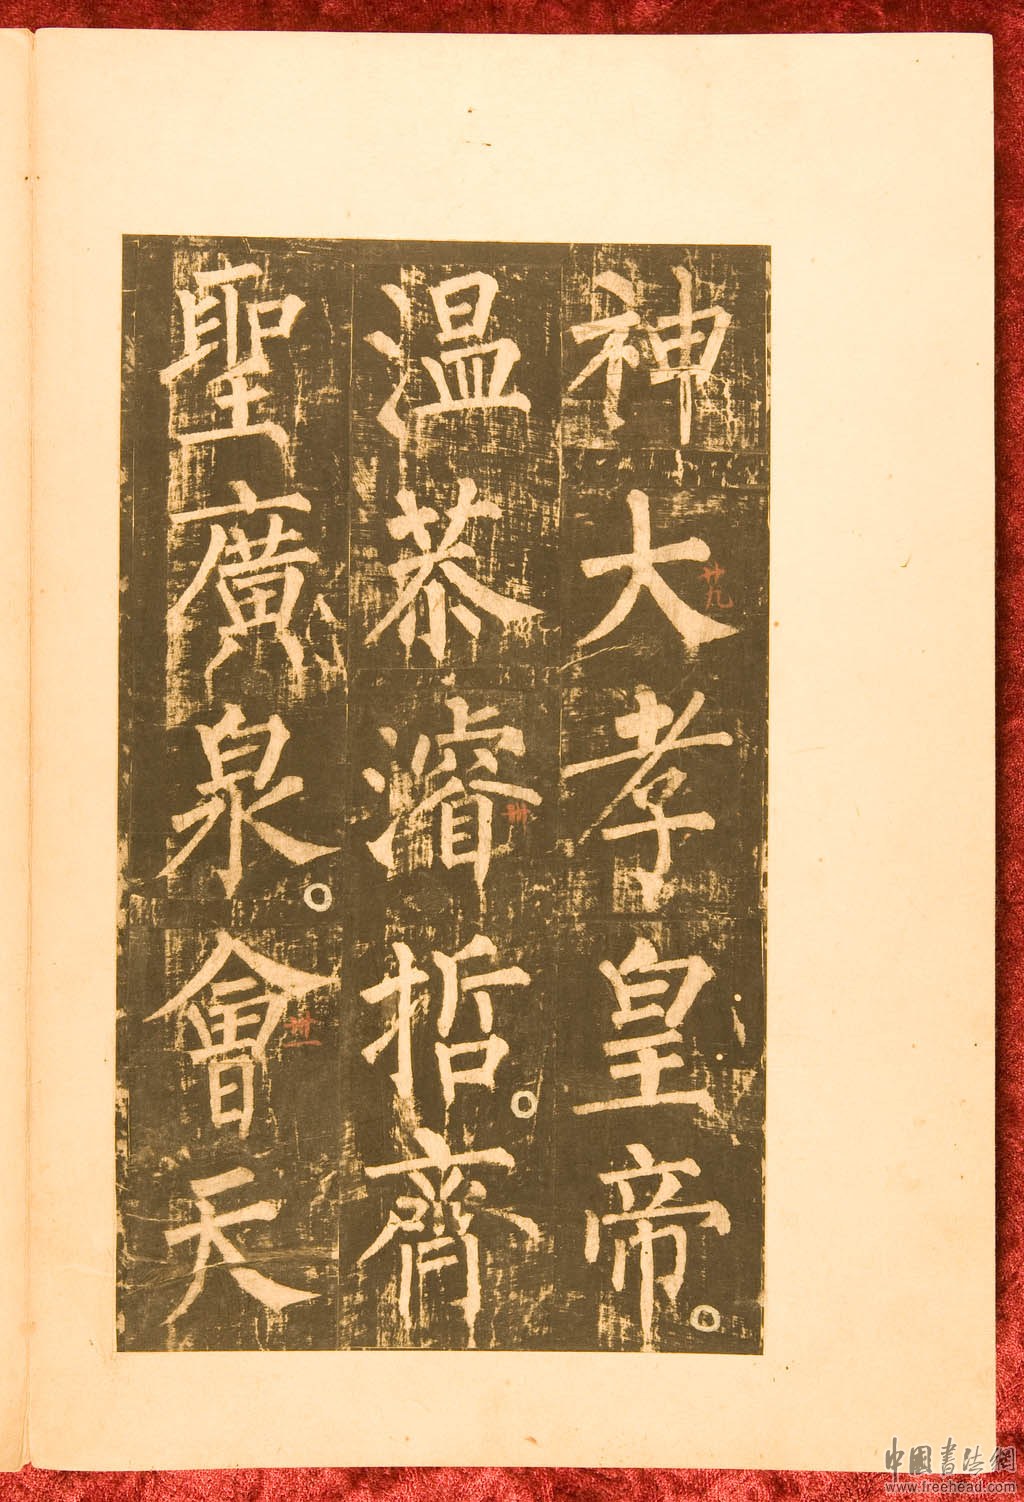 神大孝皇帝。
温恭濬哲。齊
聖廣泉。會天
廿九
卅
卅一
中国书法網
www.freehead.com